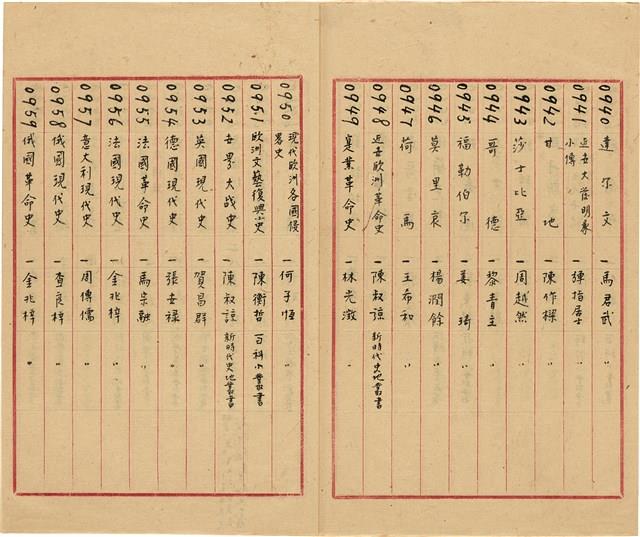 0940 達尔文 一 馬君武
0941 近古大發明家小傳 一 彈指居士
0942 甘地 一 陳作樑
0943 莎士比亞 一 周越然 〃
0944 哥德 一 黎青主 〃
0945 福勒伯尔 一 姜琦 〃
0946 莫里哀 一 楊潤餘 〃
0947 荷馬 一 王希和 〃
0948 近古欧洲革命史 一 陳叔諒 新時代史地叢書
0949 產業革命史 一 林光澂 〃
0950 現代欧洲各國侵畧史 一 何子恒
0951 欧洲文藝復興小史 一 陳衡哲 百科小叢書
0952 古界大战史 一 陳叔諒 新時代史地叢書
0953 英國現代史 一 賀昌群 〃
0954 德國現代史 一 張世祿 〃
0955 法國革命史 一 馬宗融 〃
0956 法國現代史 一 金兆梓 〃
0957 意大利現代史 一 周傳儒 〃
0958 俄國現代史 一 查良梓 〃
0959 俄國革命史 一 金兆梓 〃